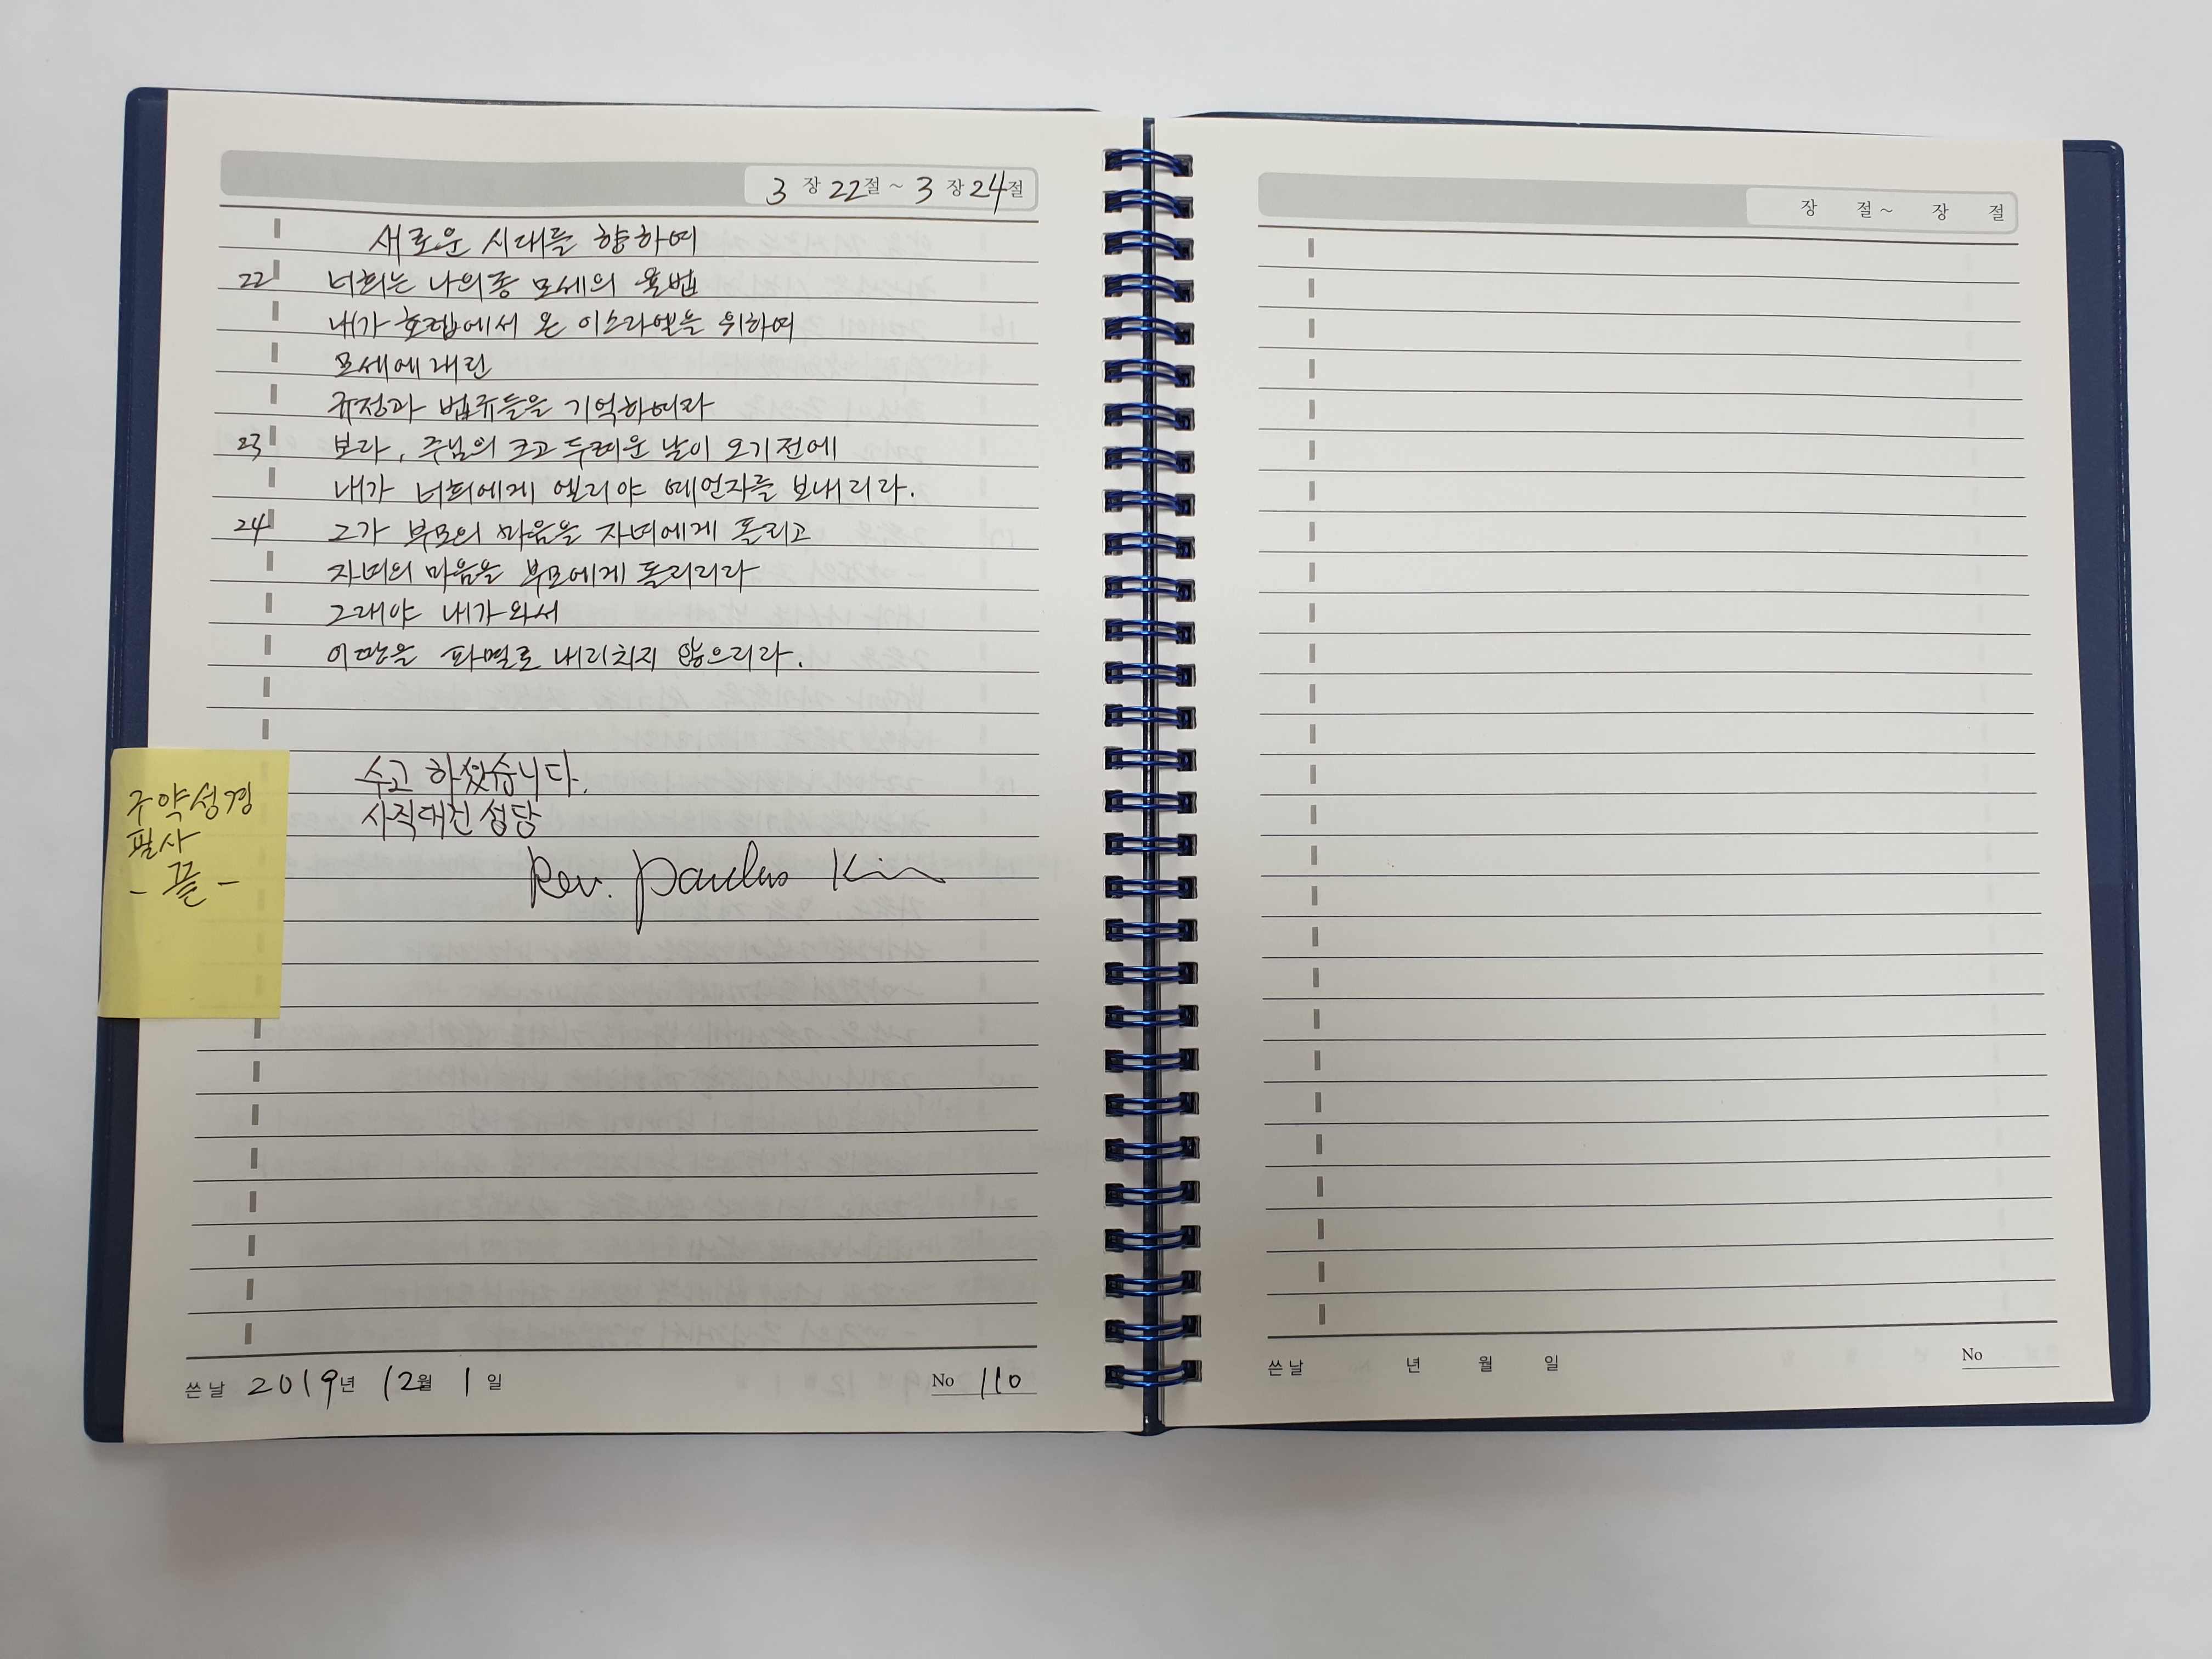 3 장 22절 ~ 3 장 24절
새로운 시대를 향하여
22 너희는 나의종 모세의 율법
내가 호렙에서 온 이스라엘을 위하여
모세에 내린
규정과 법규들을 기억하여라
23 보라, 주님의 크고 두려운 날이 오기전에
내가 너희에게 엘리야 예언자를 보내리라.
24 그가 부모의 마음을 자녀에게 돌리고
자녀의 마음을 부모에게 돌리리라
그래야 내가와서
이땅을 파멸로 내리치지 않으리라.
수고 하셨습니다.
사직대건 성당
Rev. Paulus Kim
구약성경
필사
- 끝 -
쓴날 2019년 12월 1일
No 110
장 절 ~ 장 절
쓴날 년 월 일
No